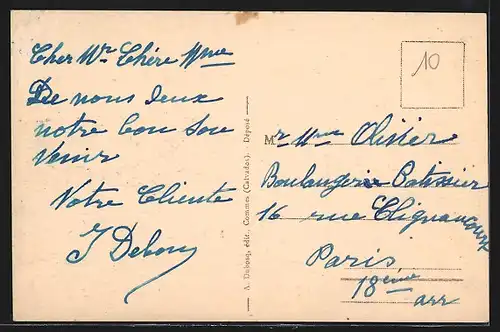 Cher Mr Chère Mme
De nous deux
notre bon Sou
venir
Votre Cliente
J Debon
A. Dubosq, édit., Commes (Calvados). Déposé
10
Mr Mme Olivier
Boulangerie Patissier
16 rue Clignancourt
Paris
18eme
arr